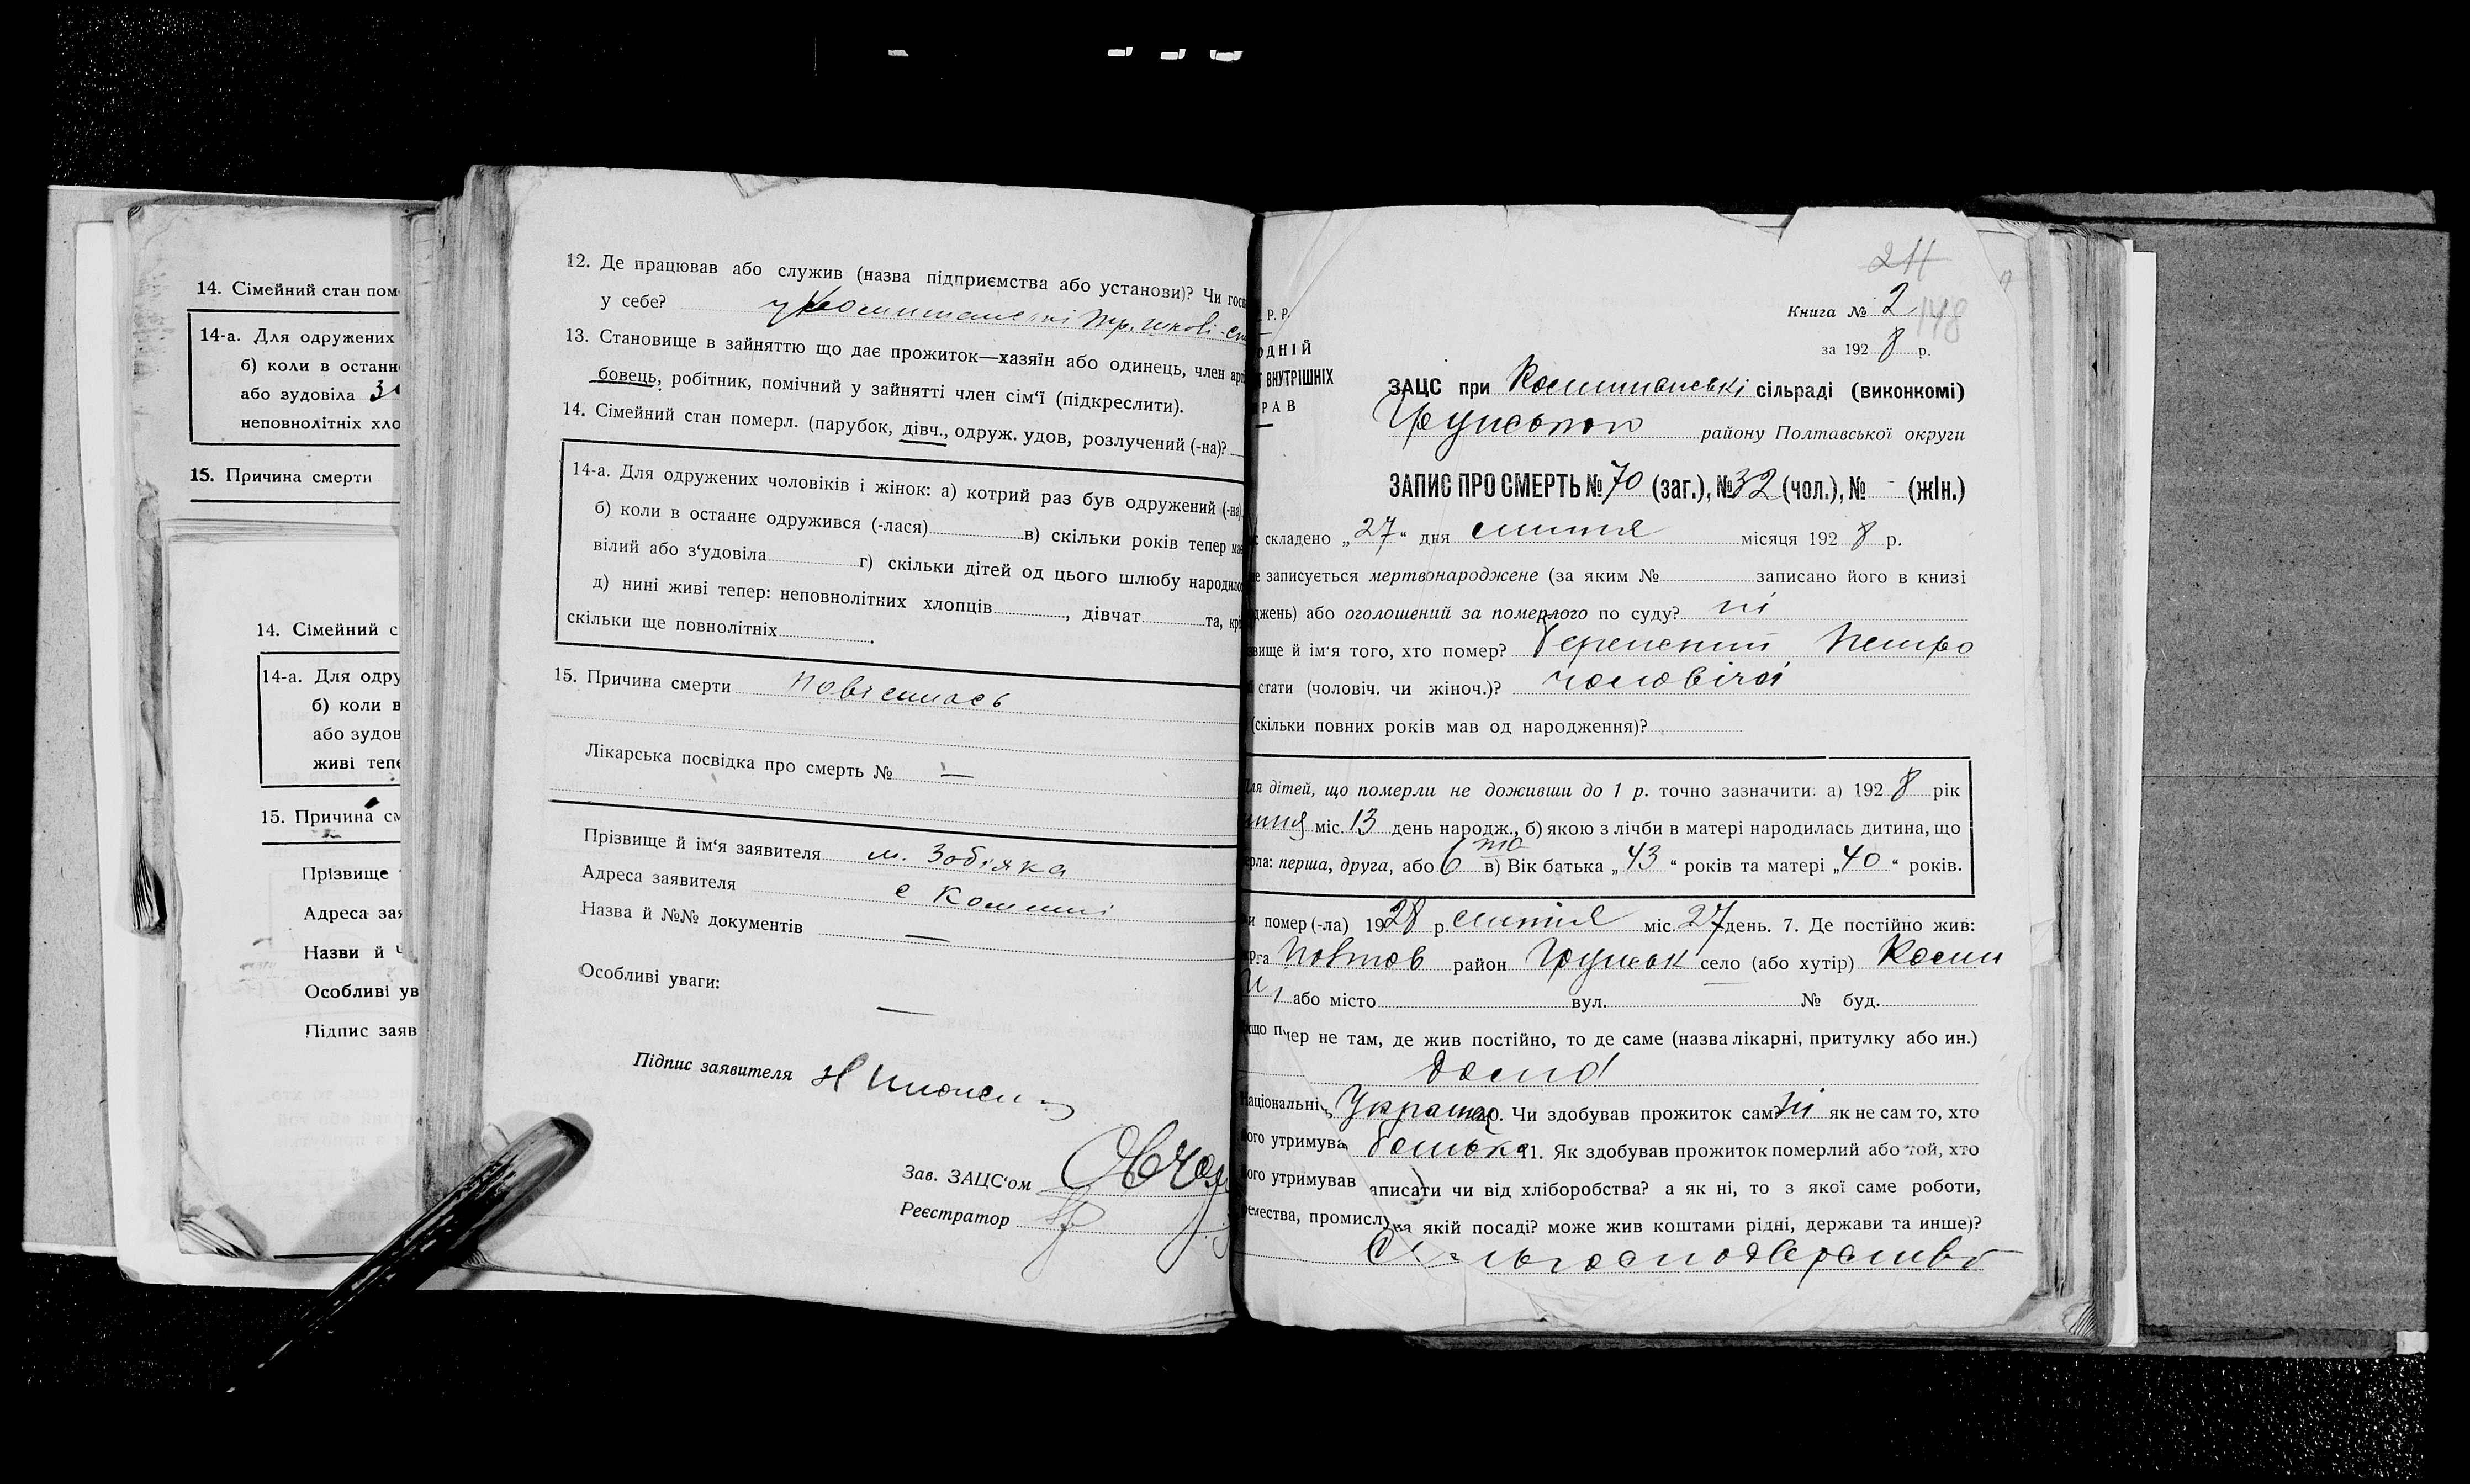 14. Сімейний стан пом
14-а. Для одружених
б) коли в останн
або зудовіла
неповнолітніх хло
15. Причина смерти
14. Сімейний с
14-а. Для одру
б) коли в
або зудов
живі тепе
15. Причина см
Прізвище
Адреса зая
Назви й
Особливі ув
Підпис заяв
12. Де працював або служив (назва підприємства або установи)? Чи госп
у себе?
13. Становище в зайняттю що дає прожиток—хазяїн або одинець, член арт
бовець, робітник, помічний у зайнятті член сім'ї (підкреслити).
14. Сімейний стан померл. (парубок, дівч., одруж. удов, розлучений (-на)?
14-а. Для одружених чоловіків і жінок: а) котрий раз був одружений (-на)
б) коли в останнє одружився (-лася) в) скільки років тепер має
вілий або з'удовіла г) скільки дітей од цього шлюбу народило
д) нині живі тепер: неповнолітних хлопців , дівчат та, крі
скільки ще повнолітніх .
15. Причина смерти повісилась
Лікарська посвідка про смерть № —
Прізвище й ім'я заявителя м. Забіяка
Адреса заявителя с
Назва й №№ документів —
Особливі уваги:
—
Підпис заявителя
Зав. ЗАЦС'ом
Реєстратор
24
148
Книга № 2
за 1928 р.
Р. Р.
ОДНІЙ
ВНУТРІШНІХ
РАВ
ЗАЦС при сільраді (виконкомі)
району Полтавської округи
ЗАПИС ПРО СМЕРТЬ № 70 (заг.), № 32 (чол.), № - (жін.)
складено „27“ дня липня місяця 1928 р.
е записується мертвонароджене (за яким № записано його в книзі
джень) або оголошений за померлого по суду? ні
вище й ім'я того, хто помер? Петро
стати (чоловіч. чи жіноч.)? чоловічої
(скільки повних років мав од народження)?
Для дітей, що померли не доживши до 1 р. точно зазначити: а) 1928 рік
липня міс. 13 день народж., б) якою з лічби в матері народилась дитина, що
ерла: перша, друга, або 6 та в) Вік батька „43“ років та матері „40“ років.
и помер (-ла) 1928 р. липня міс. 27 день. 7. Де постійно жив:
руга Полтав район Грунськ село (або хутір)
або місто вул. № буд.
кщо пмер не там, де жив постійно, то де саме (назва лікарні, притулку або ин.)
дома
Національніс . Чи здобував прожиток сам? ні як не сам то, хто
ого утримува батько 11. Як здобував прожиток померлий або той, хто
ого утримував аписати чи від хліборобства? а як ні, то з якої саме роботи,
емества, промислу на якій посаді? може жив коштами рідні, держави та инше)?